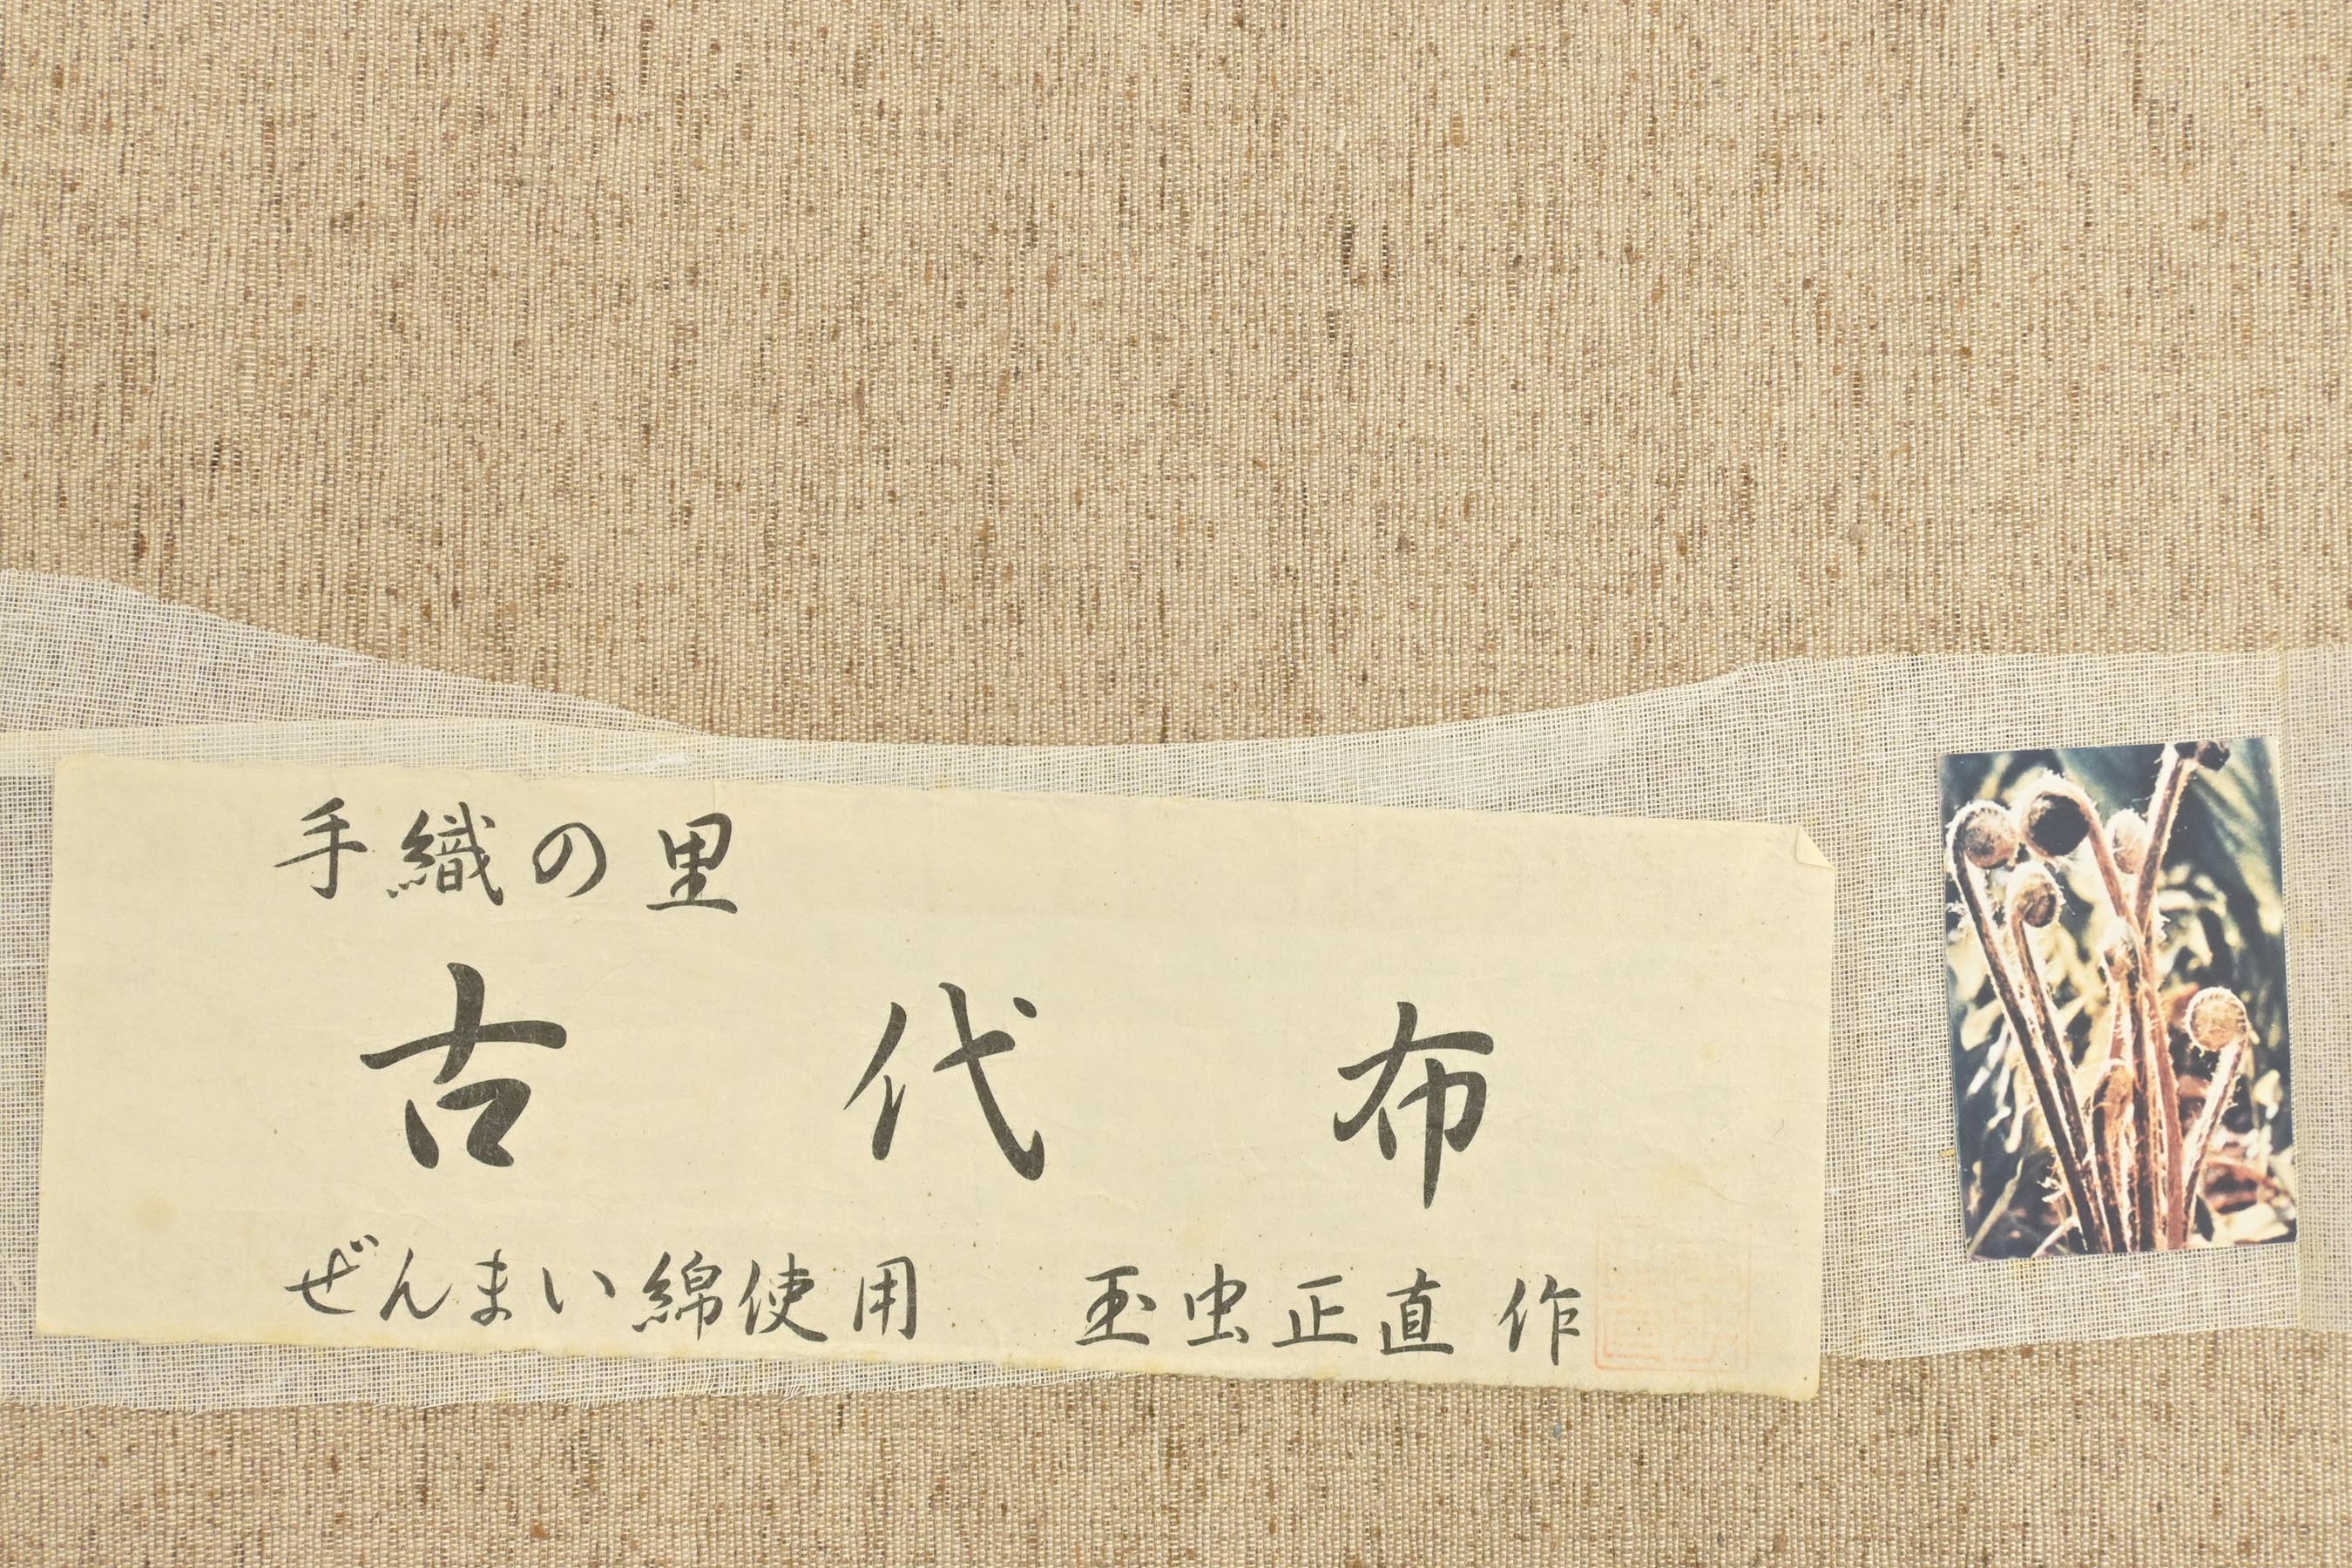 手織の里
古代布
ぜんまい綿使用 玉虫正直 作